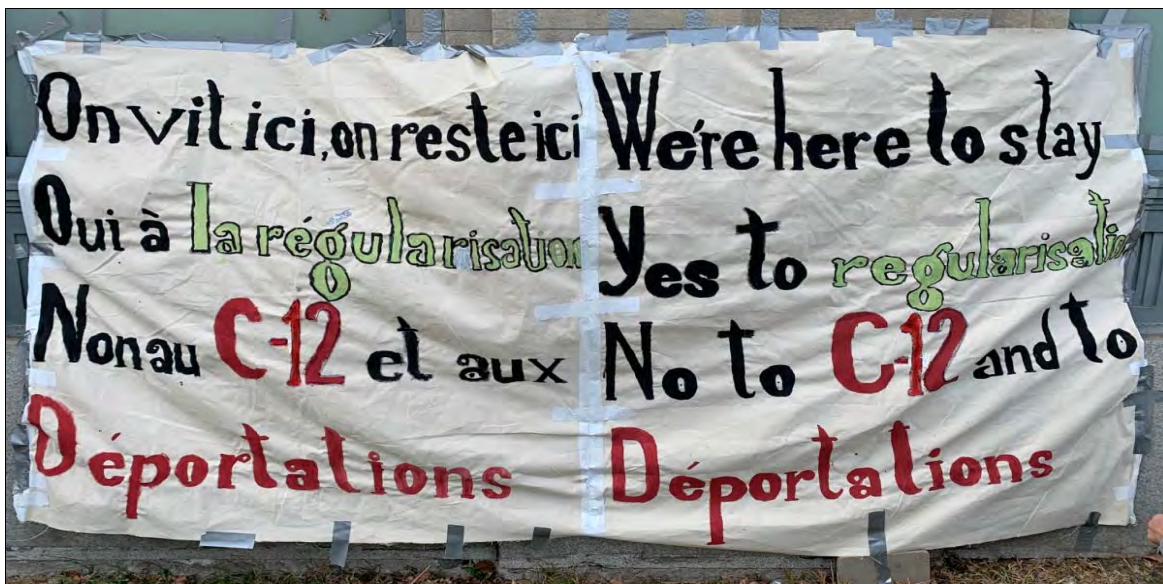 On vit ici, on reste ici
Oui à la régularisation
Non au C-12 et aux
Déportations
We're here to stay
Yes to regularisation
No to C-12 and to
Déportations